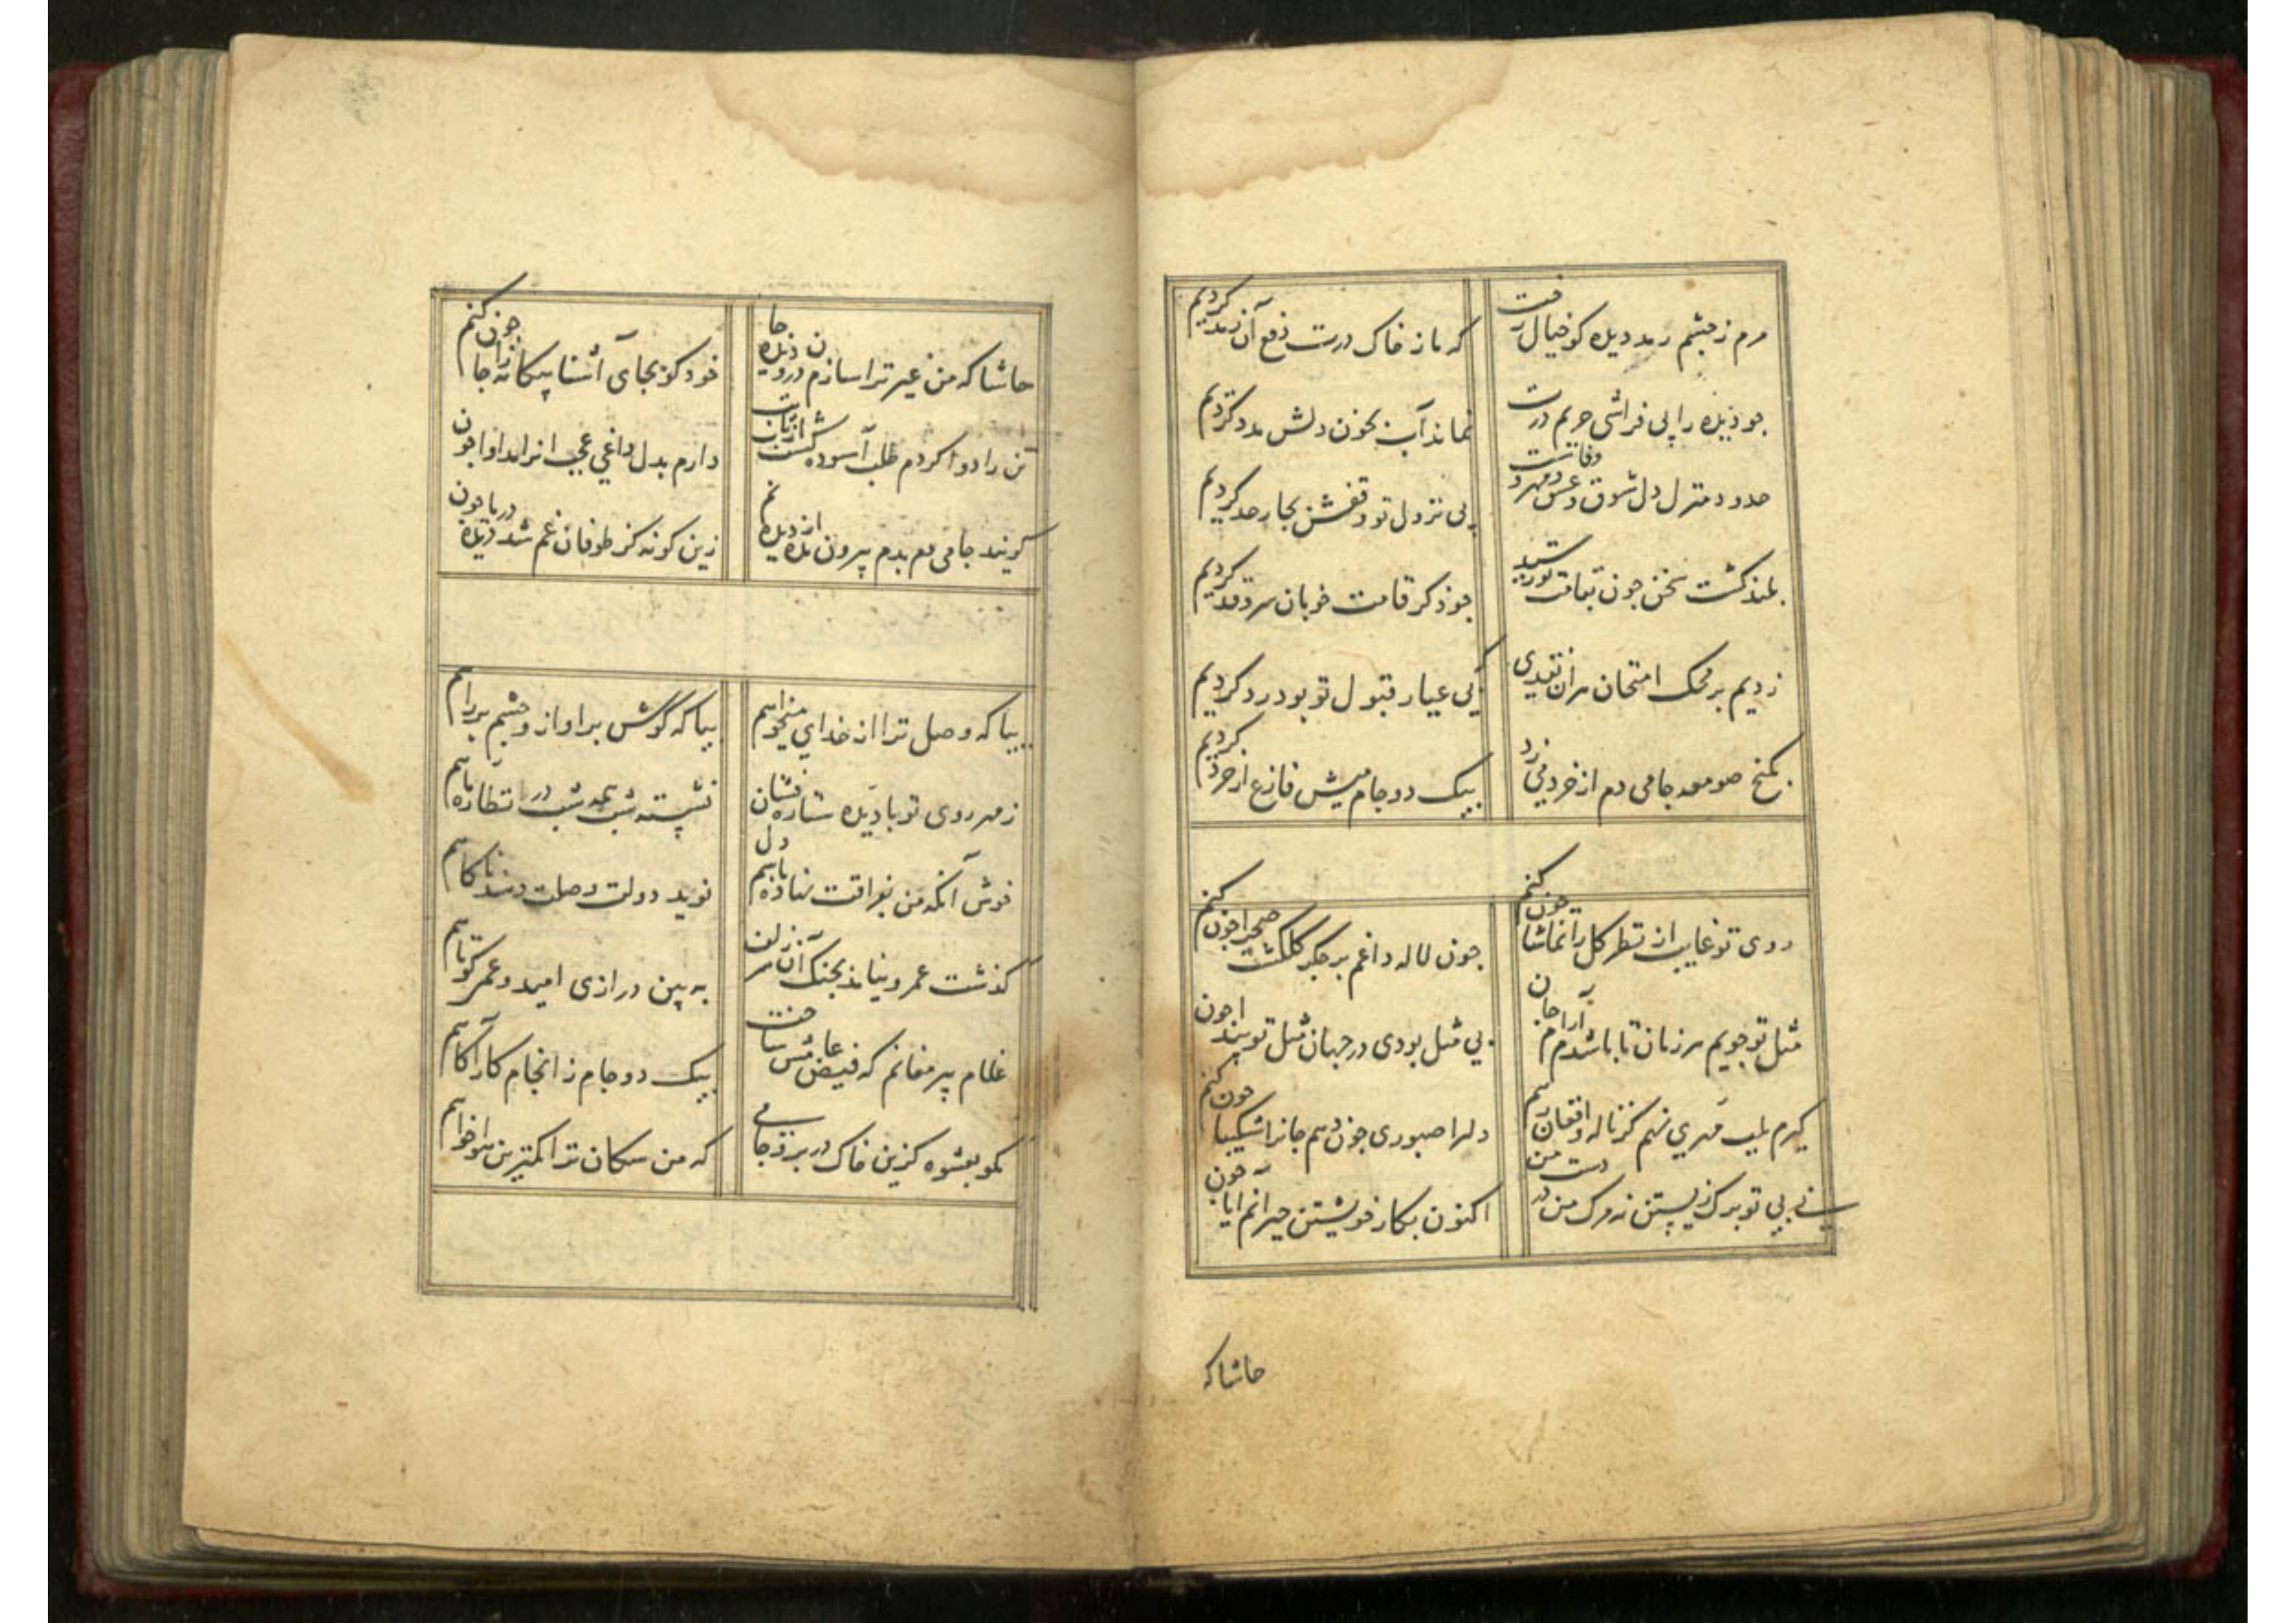 مرم ز چشم رمد دیده کو خیال رخت
که ما ز خاک درت دفع آن رمد کردیم
جو دیده را پی فراشی حریم درت
نماند آب بخون دلش مدد کردیم
حدود منزل دل شوق و عشق و مهر و وفاست
پی نزول تو وقفش بجار حد کردیم
بلند کشت سخن جون بقامت تو رسید
جو ذکر قامت خوبان سرو قد کردیم
زدیم بر محک امتحان هران نقدی
که بی عیار قبول تو بود رد کردیم
بکنج صومعه جامی دم از خرد میزد
بیک دو جام میش فارغ از خرد کردیم
روی تو غایب از نظر کل را تماشا جون کنم
جون لاله داغم بر جکر کلکشت صحرا جون کنم
مثل تو جویم هر زمان تا باشدم آرام جان
بی مثل بودی در جهان مثل تو پیدا جون
کیرم بلب مهری نهم کز ناله و افغان رهم
دلرا صبوری جون دهم جانرا شکیبا جون کنم
نی بی تو برک زیستن نه مرک من در دست من
اکنون بکار خویشتن حیرانم آیا جون
حاشا که
حاشا که من غیر ترا سازم درون دیده جا
خود کو بجای آشنا بیکانه را جا جون کنم
تن را دوا کردم طلب آسوده کشت از تاب تب
دارم بدل داغی عجب انرا مداوا جون
کویند جامی دم بدم بیرون مده از دیده نم
زین کونه کز طوفان غم شد دیده دریا جون
بیا که وصل ترا از خدای میخواهم
بیا که گوش بر آواز و چشم بر راهم
ز مهر روی تو با دیده ستاره فشان
نشسته شب همه شب در انتظار ماهم
خوش آنکه من بفراقت نهاده باشم دل
نوید دولت وصلت دهند ناکاهم
کذشت عمر و نیامد بجنک آن سر زلف
به بین درازی امید و عمر کوتاهم
غلام پیر مغانم که فیض عامش ساخت
بیک دو جام ز انجام کار آکاهم
مکو بعشوه کزین خاک در برو جامی
که من سکان ترا کمترین هواخواهم